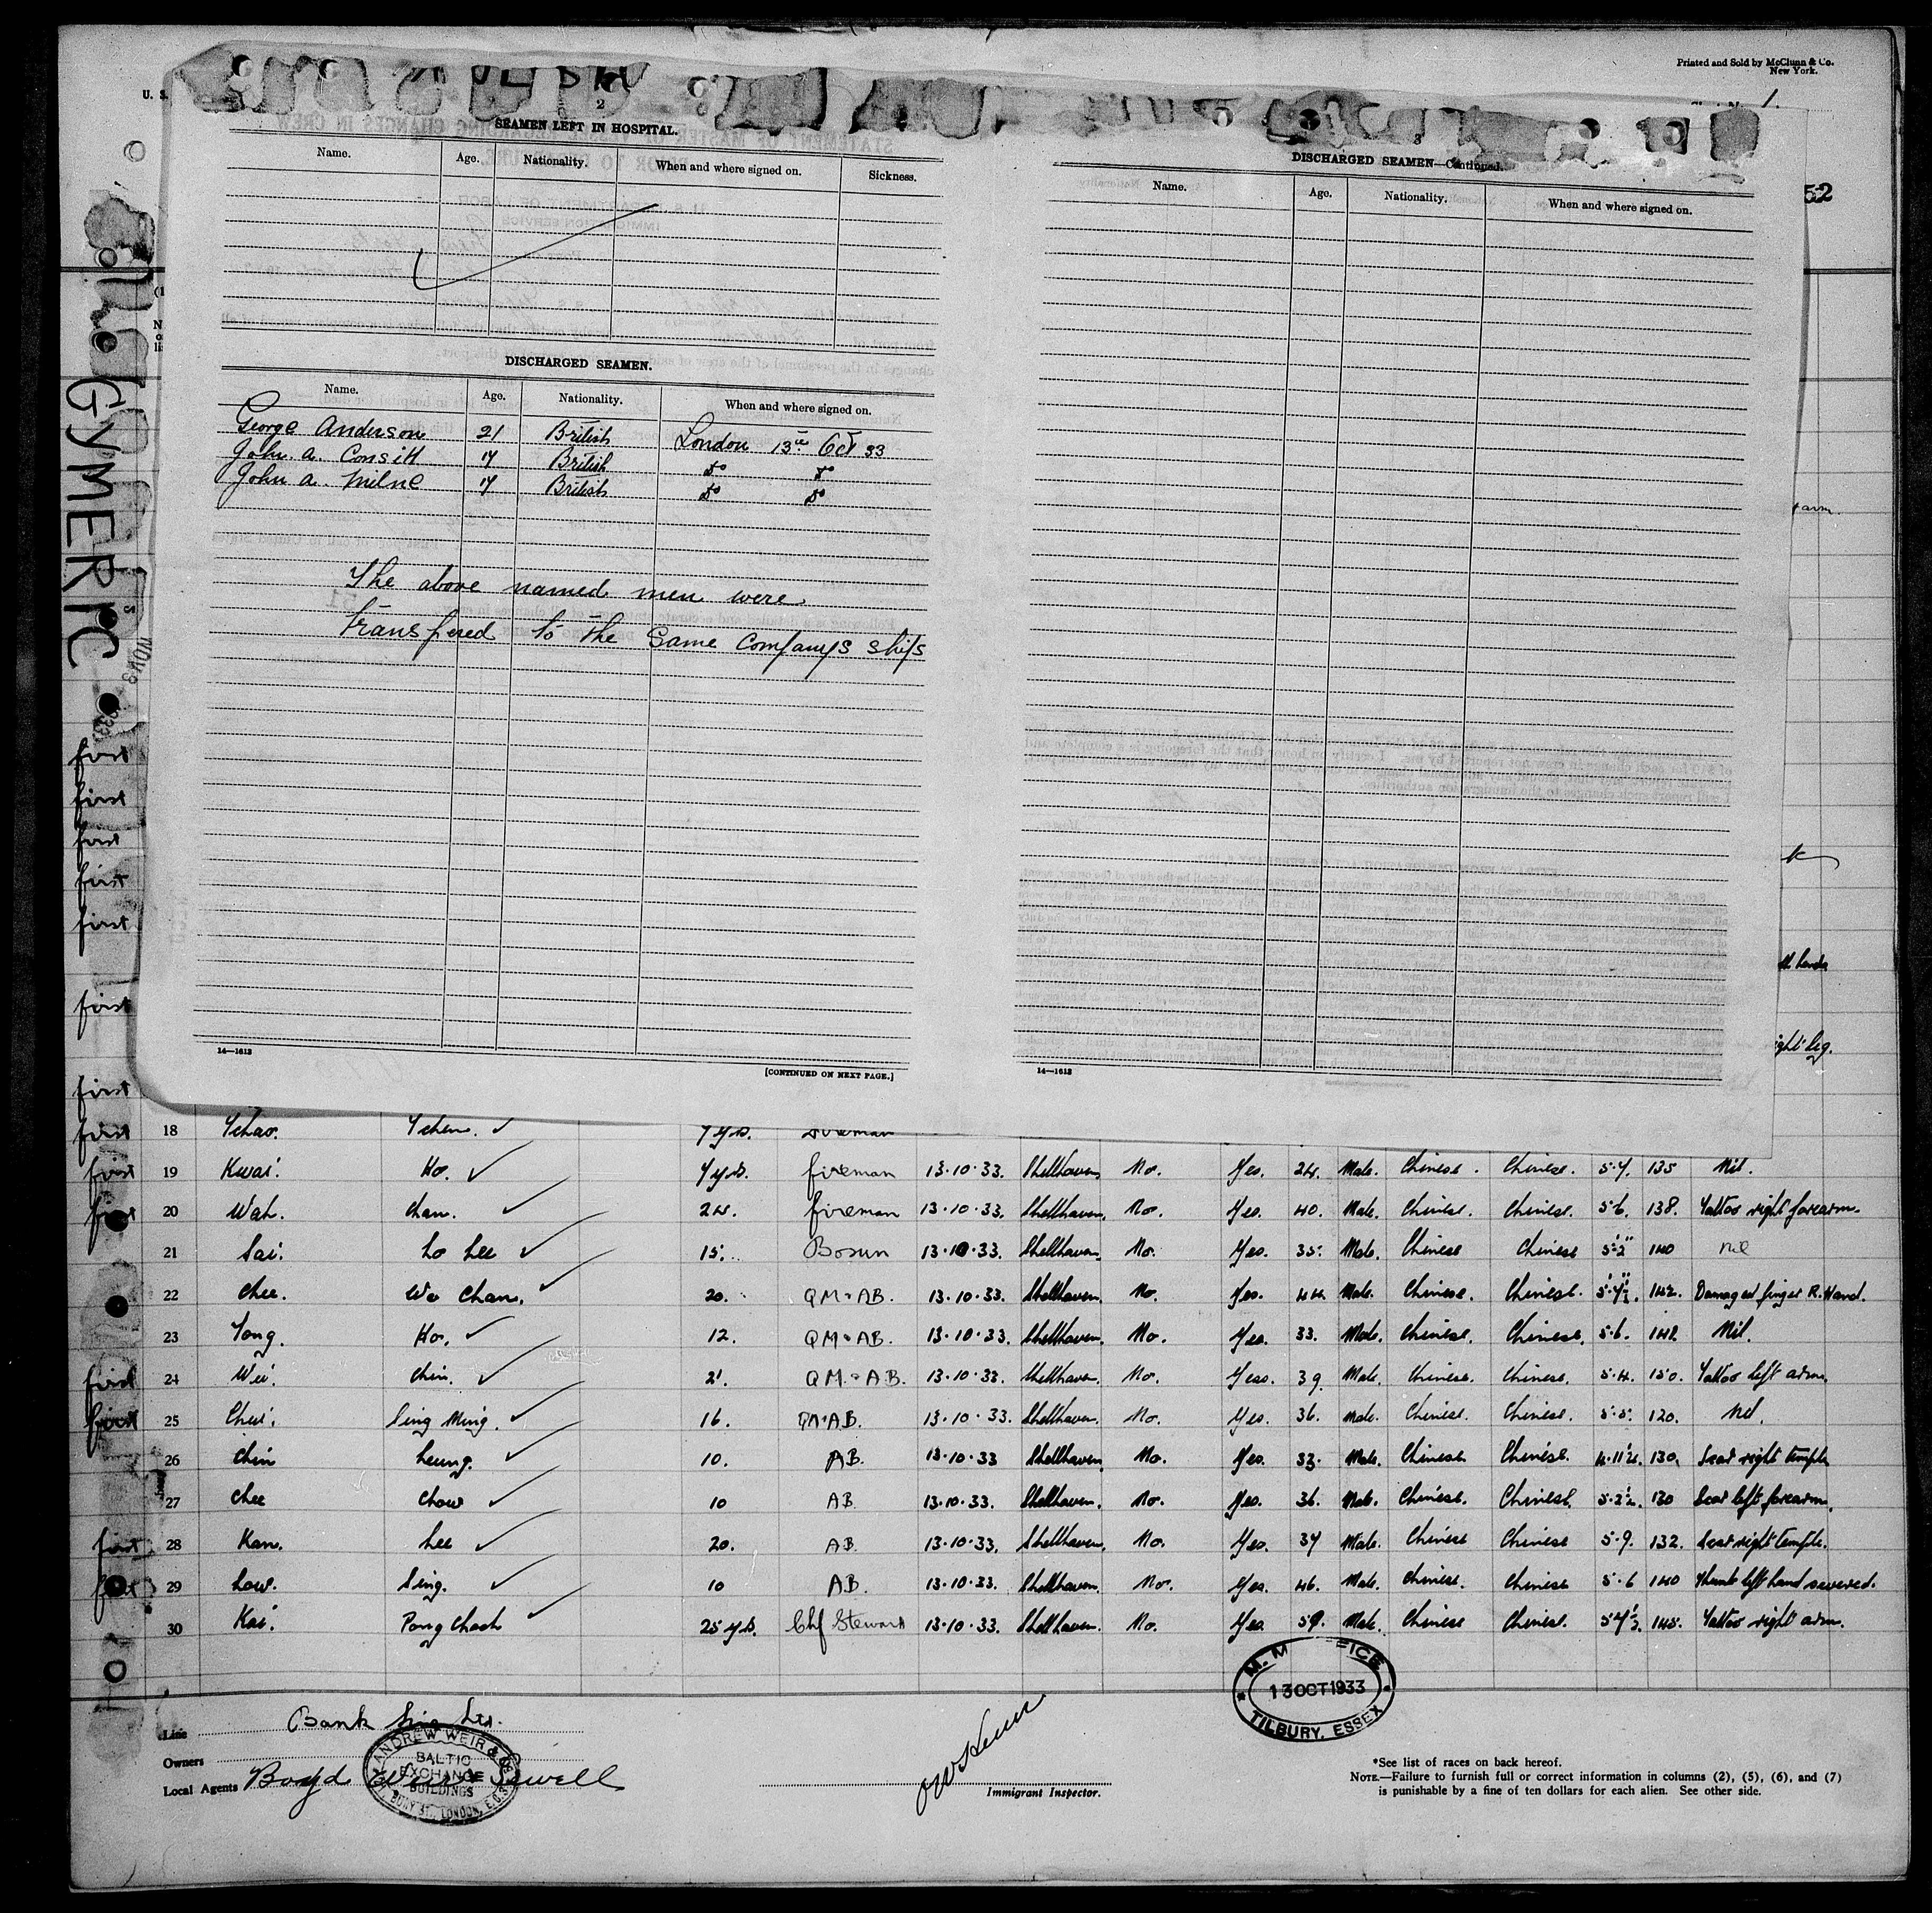 Printed and Sold by McClunn & Co.
New York.
U. S.
1.
52
GYMERIC
2
SEAMEN LEFT IN HOSPITAL.
Name. Age. Nationality. When and where signed on. Sickness.
DISCHARGED SEAMEN.
Name. Age. Nationality. When and where signed on.
George Anderson 21 British London 13th Oct 33
John. A. Consitt 17 British do do
John A. Milne 17 British do do
The above named men were
transfered to the same companys ships
14—1613
[CONTINUED ON NEXT PAGE.]
3
DISCHARGED SEAMEN—Continued.
Name. Age. Nationality. When and where signed on.
14—1613
arm.
ight leg.
first
first
first
first
first
first
first
first 18 Ychao. Ychen. 7 yrs. fireman
first 19 Kwai. Ho. 7 yrs. fireman 13.10.33. Shellhaven No. Yes. 24. Male. Chinese. Chinese. 5.7. 135 Nil.
first 20 Wah. Chan. 24. fireman 13.10.33. Shellhaven. No. Yes. 40. Male. Chinese. Chinese. 5.6. 138. Tattoo right forearm.
21 Sai. Lo Lee 15. Bosun 13.10.33. Shellhaven. No. Yes. 35. Male. Chinese Chinese 5'2" 140 Nil
22 Chee. Wo Chan. 20. QM & AB. 13.10.33. Shellhaven. No. Yes. 44. Male. Chinese. Chinese. 5'.7½". 142. Damaged finger R. Hand.
23 Yong. Ho. 12. QM & AB. 13.10.33. Shellhaven. No. Yes. 33. Male. Chinese. Chinese. 5.6. 148. Nil.
first 24 Wei. Chin. 21. QM & AB. 13.10.33. Shellhaven. No. Yes. 39. Male. Chinese. Chinese. 5.4. 150. Tattoo left arm.
first 25 Chui. Sing Ming. 16. QM & AB. 13.10.33. Shellhaven. No. Yes. 36. Male. Chinese. Chinese. 5.5. 120. Nil.
26 Chin Leung. 10. AB. 13.10.33 Shellhaven. No. Yes. 33. Male. Chinese Chinese. 4.11½. 130. Scar right temple
27 Chee Chow 10 AB. 13.10.33. Shellhaven. No. Yes. 36. Male. Chinese. Chinese. 5.2½. 130 Scar left forearm.
first 28 Kan. Lee 20. AB. 13.10.33. Shellhaven. No. Yes. 37 Male. Chinese Chinese 5.9. 132. Scar right temple.
first 29 Low. Sing. 10 AB. 13.10.33. Shellhaven. No. Yes. 46. Male. Chinese. Chinese 5.6 140 Thumb left hand severed.
30 Kai. Pong Chack 25 yrs. Chf Steward 13.10.33. Shellhaven. No. Yes. 59. Male. Chinese Chinese. 5 7½. 145. Tattoo right arm.
M. M FICE
13 OCT 1933
TILBURY, ESSEX
Line Bank Line Ltd.
Owners
ANDREW WEIR & CO.
BALTIC
EXCHANGE
BUILDINGS
BURY ST., LONDON, E.C.3
Local Agents Boyd Weir & Sewell
Immigrant Inspector.
*See list of races on back hereof.
NOTE.—Failure to furnish full or correct information in columns (2), (5), (6), and (7)
is punishable by a fine of ten dollars for each alien. See other side.